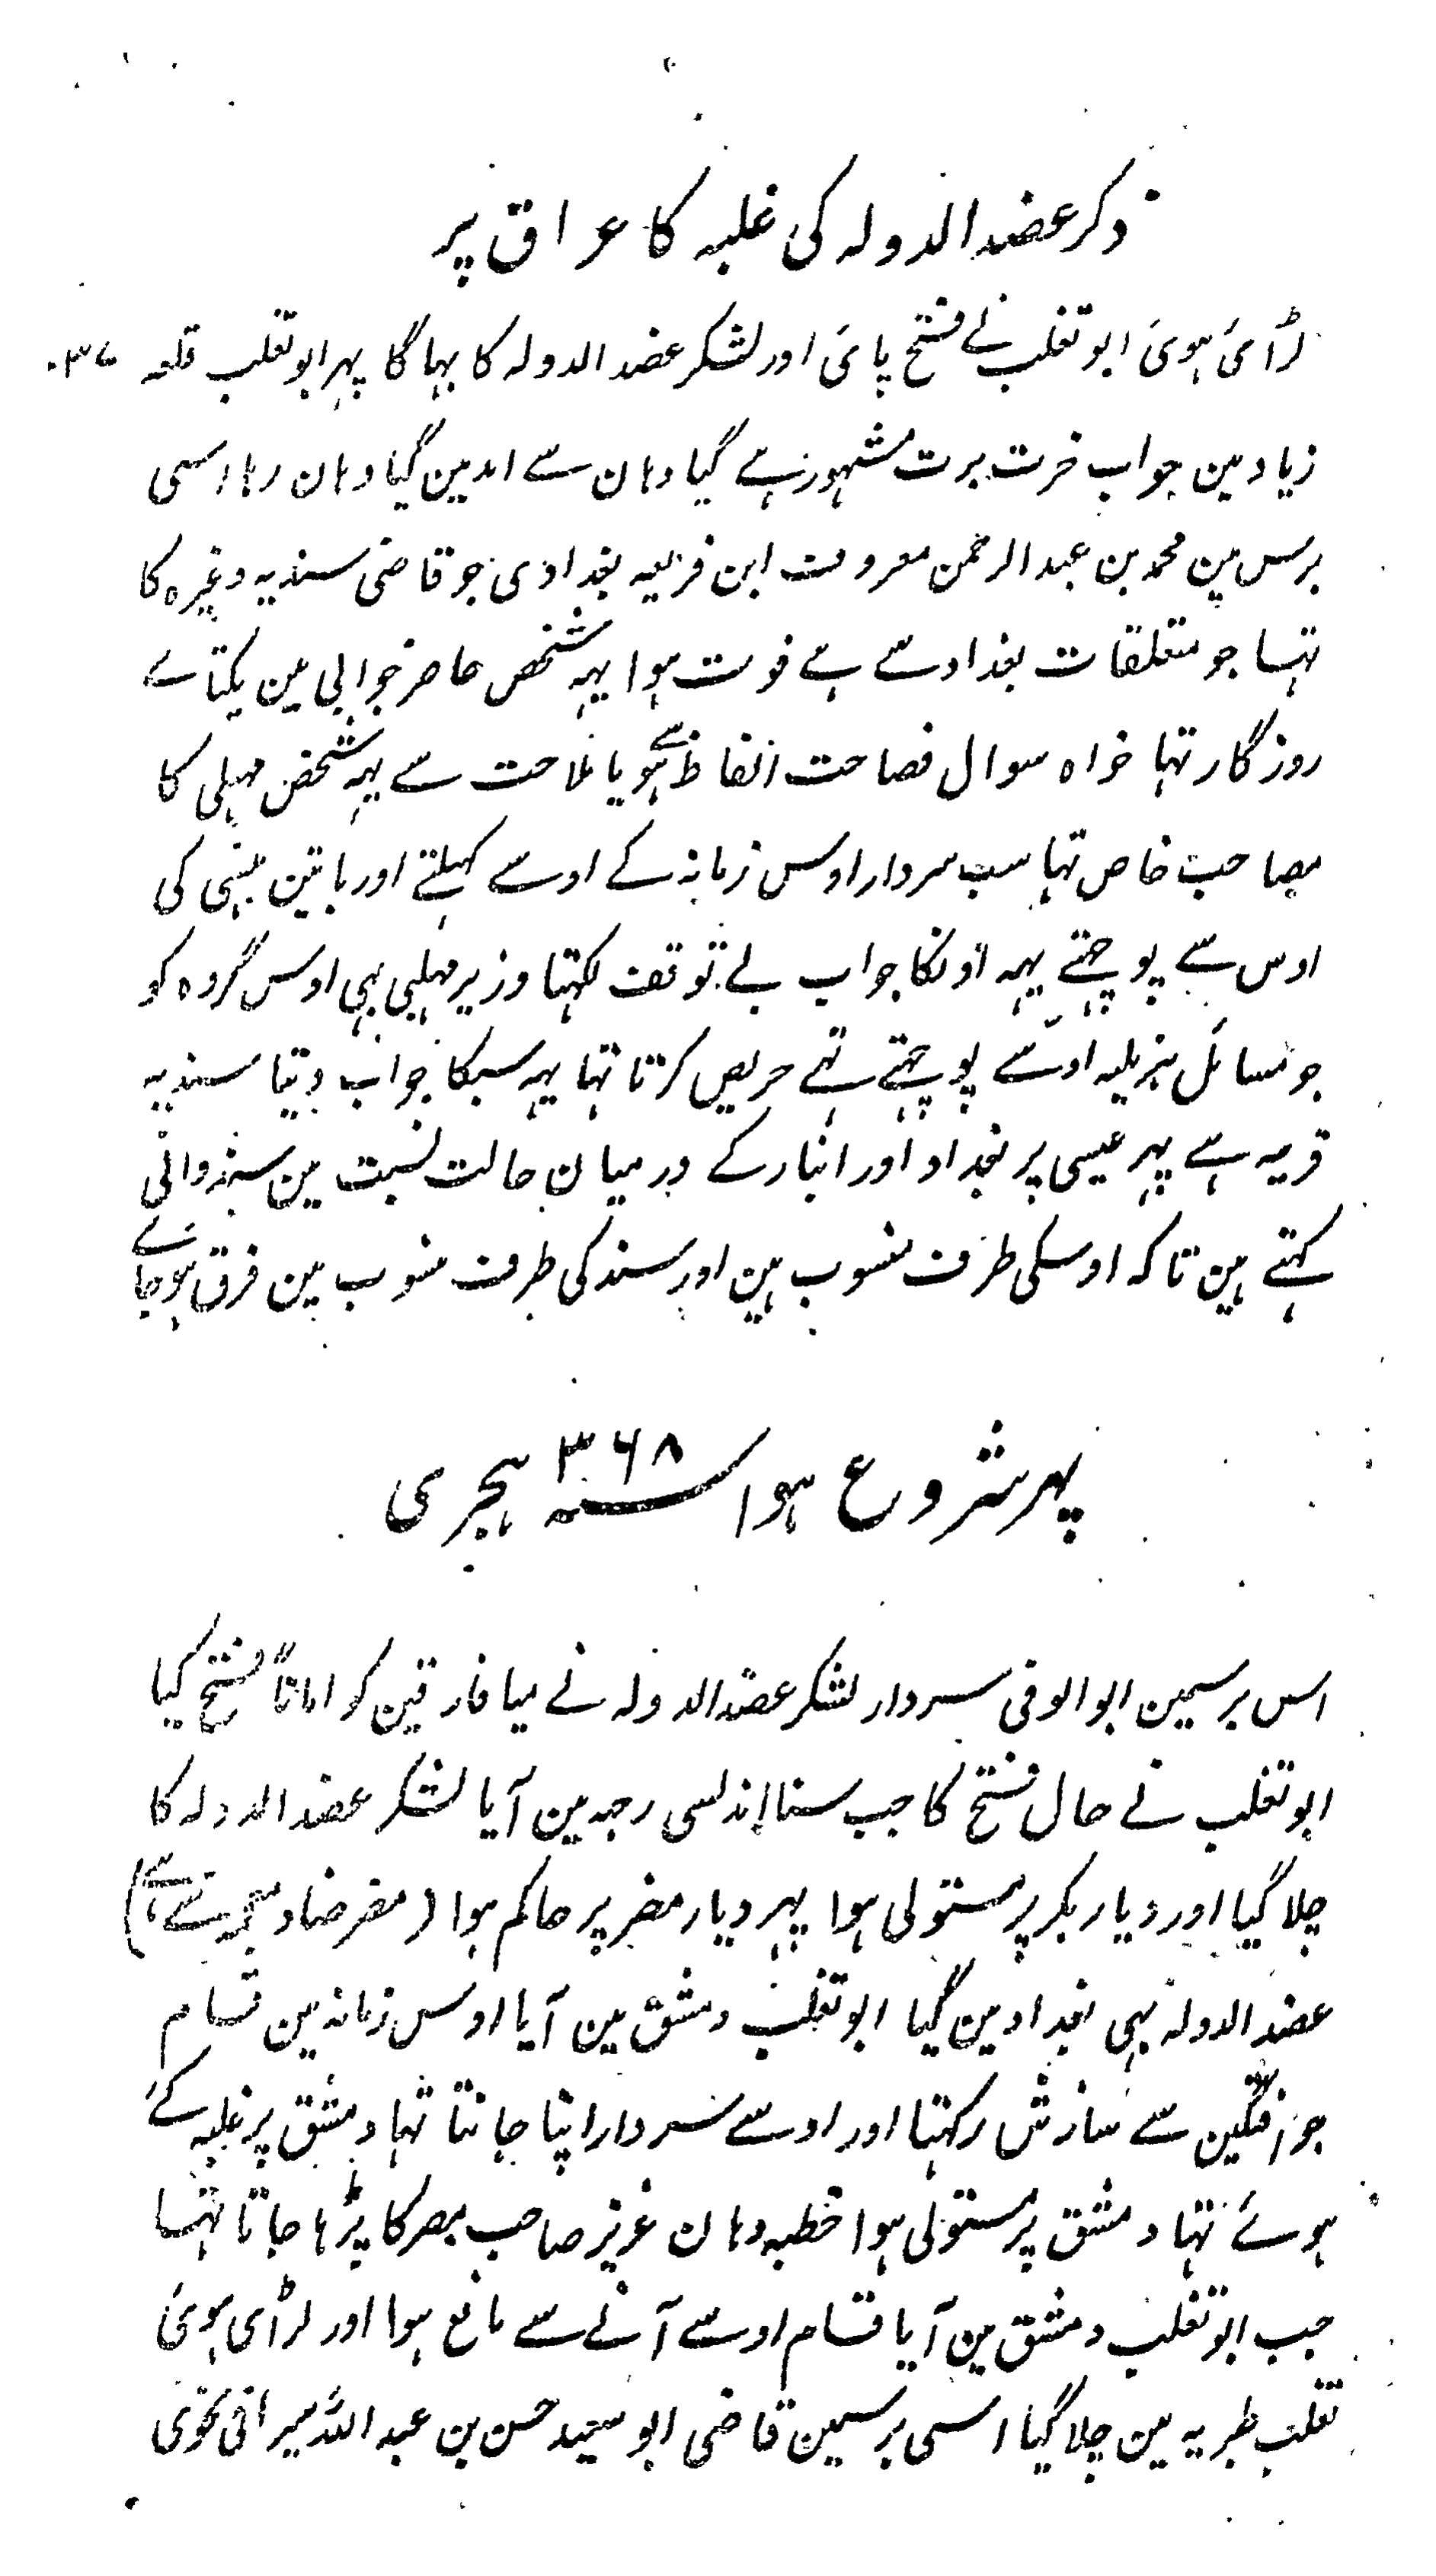 ذکر عضد الدولہ کی غلبہ کا عراق پر
لڑائی ہوئی ابو تغلب نے فتح پائی اور لشکر عضد الدولہ کا بہاگا پہر ابو تغلب قلعہ
زیاد مین جو اب خرت برت مشہور ہے گیا وہان سے امد مین گیا وہان رہا اسی
برس مین محمد بن عبد الرحمن معروف ابن قریعہ بغدادی جو قاضی سندیہ وغیرہ کا
تہا جو متعلقات بغداد سے ہے فوت ہوا یہہ شخص حاضر جوابی مین یکتاے
روزگار تہا خواہ سوال فصاحت الفاظ سے ہو یا ملاحت سے یہہ شخص مہلبی کا
مصاحب خاص تہا سب سردار اوس زمانہ کے اوسے کہیلتے اور باتین ہنسی کی
اوس سے پوچہتے یہہ اونکا جواب بے توقف لکہتا وزیر مہلبی بہی اوس گروہ کو
جو مسائل ہزلیہ اوسے پوچہتے تہے حریص کرتا تہا یہہ سبکا جواب دیتا سندیہ
قریہ ہے نہر عیسی پر بغداد اور انبار کے درمیان حالت نسبت مین سندوانی
کہتے ہین تاکہ اوسکی طرف منسوب ہین اور سند کی طرف منسوب مین فرق ہوجاے
پہر شروع ہوا سنہ ۳۶۸ ہجری
اس برسمین ابو الوفی سردار لشکر عضد الدولہ نے میافارقین کو اماناً فتح کیا
ابو تغلب نے حال فتح کا جب سنا اندلسی رحبہ مین آیا لشکر عضد الدولہ کا
چلا گیا اور دیار بکر پر مستولی ہوا پہر دیار مضر پر حاکم ہوا (مضر ضاد معجمہ سے ہے)
عضد الدولہ بہی بغداد مین گیا ابو تغلب دمشق مین آیا اوس زمانہ مین قسام
جو افتکین سے سازش رکہتا اور اوسے سردار اپنا جانتا تہا دمشق پر غلبہ کئے
ہوئے تہا دمشق پر مستولی ہوا خطبہ وہان عزیز صاحب مصر کا پڑہا جاتا تہا
جب ابو تغلب دمشق مین آیا قسام اوسے آنے سے مانع ہوا اور لڑائی ہوئی
تغلب طبریہ مین چلا گیا اسی برسمین قاضی ابو سعید حسن بن عبد اللہ سیرافی نحوی